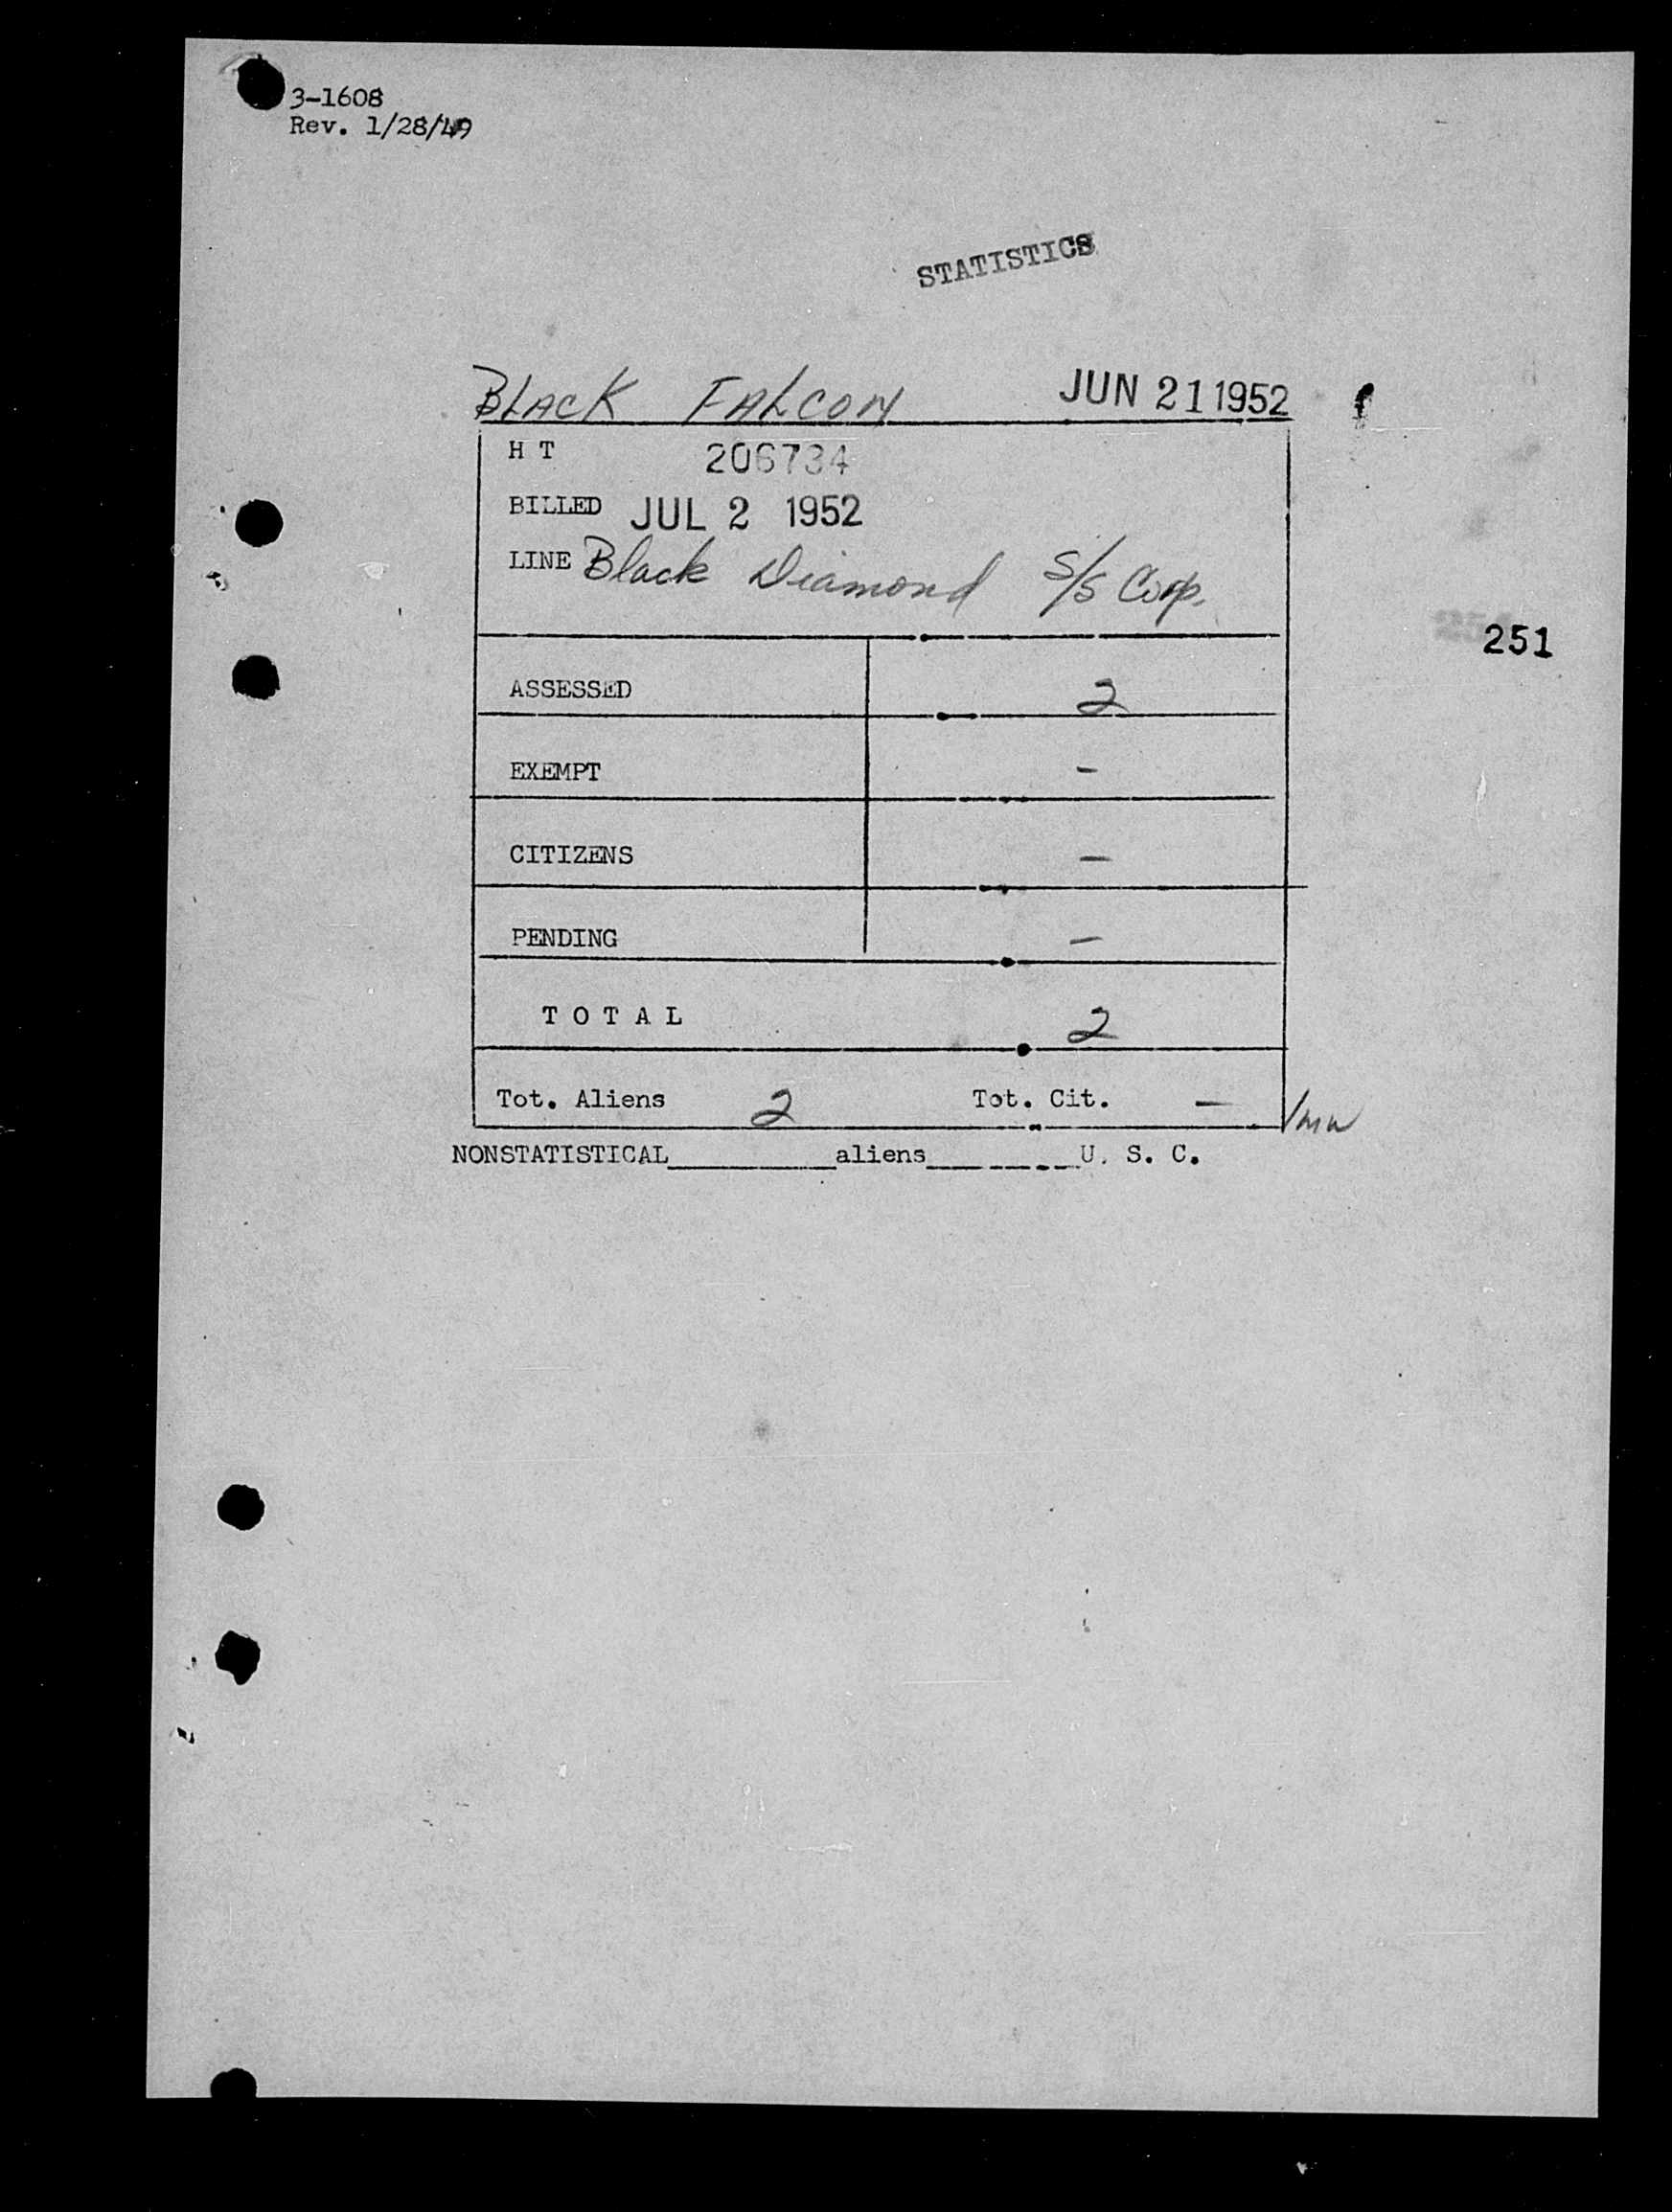 3-1608
Rev. 1/28/49
STATISTICS
BLACK FALCON JUN 21 1952
H T 206734
BILLED JUL 2 1952
LINE Black Diamond S/S Corp.
251
ASSESSED 2
EXEMPT -
CITIZENS -
PENDING -
T O T A L 2
Tot. Aliens 2 Tot. Cit. -
NONSTATISTICAL__________aliens_________U. S. C.